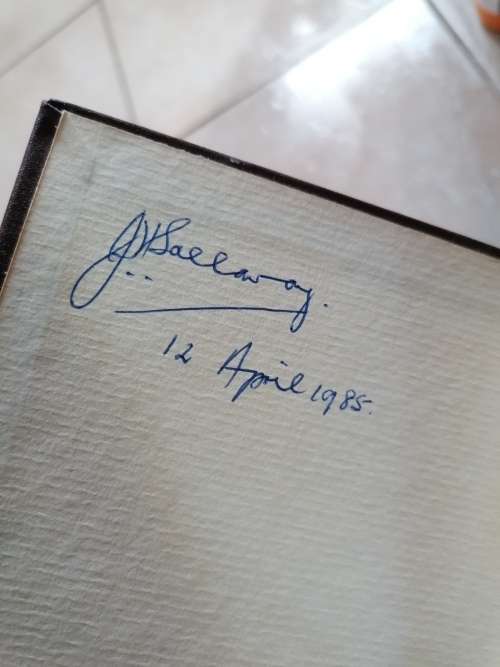 J H Gallaway.
12 April 1985.